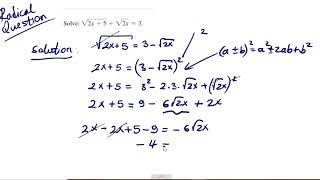 Radical
Question
Solve: √2x + 5 + √2x = 3.
Solution:
√2x+5 = 3 - √2x
2
2x+5 = (3 - √2x)²
(a ± b)² = a² ± 2ab + b²
2x+5 = 3² - 2.3.√2x + (√2x)²
2x+5 = 9 - 6√2x + 2x
2x - 2x + 5 - 9 = - 6√2x
- 4 =